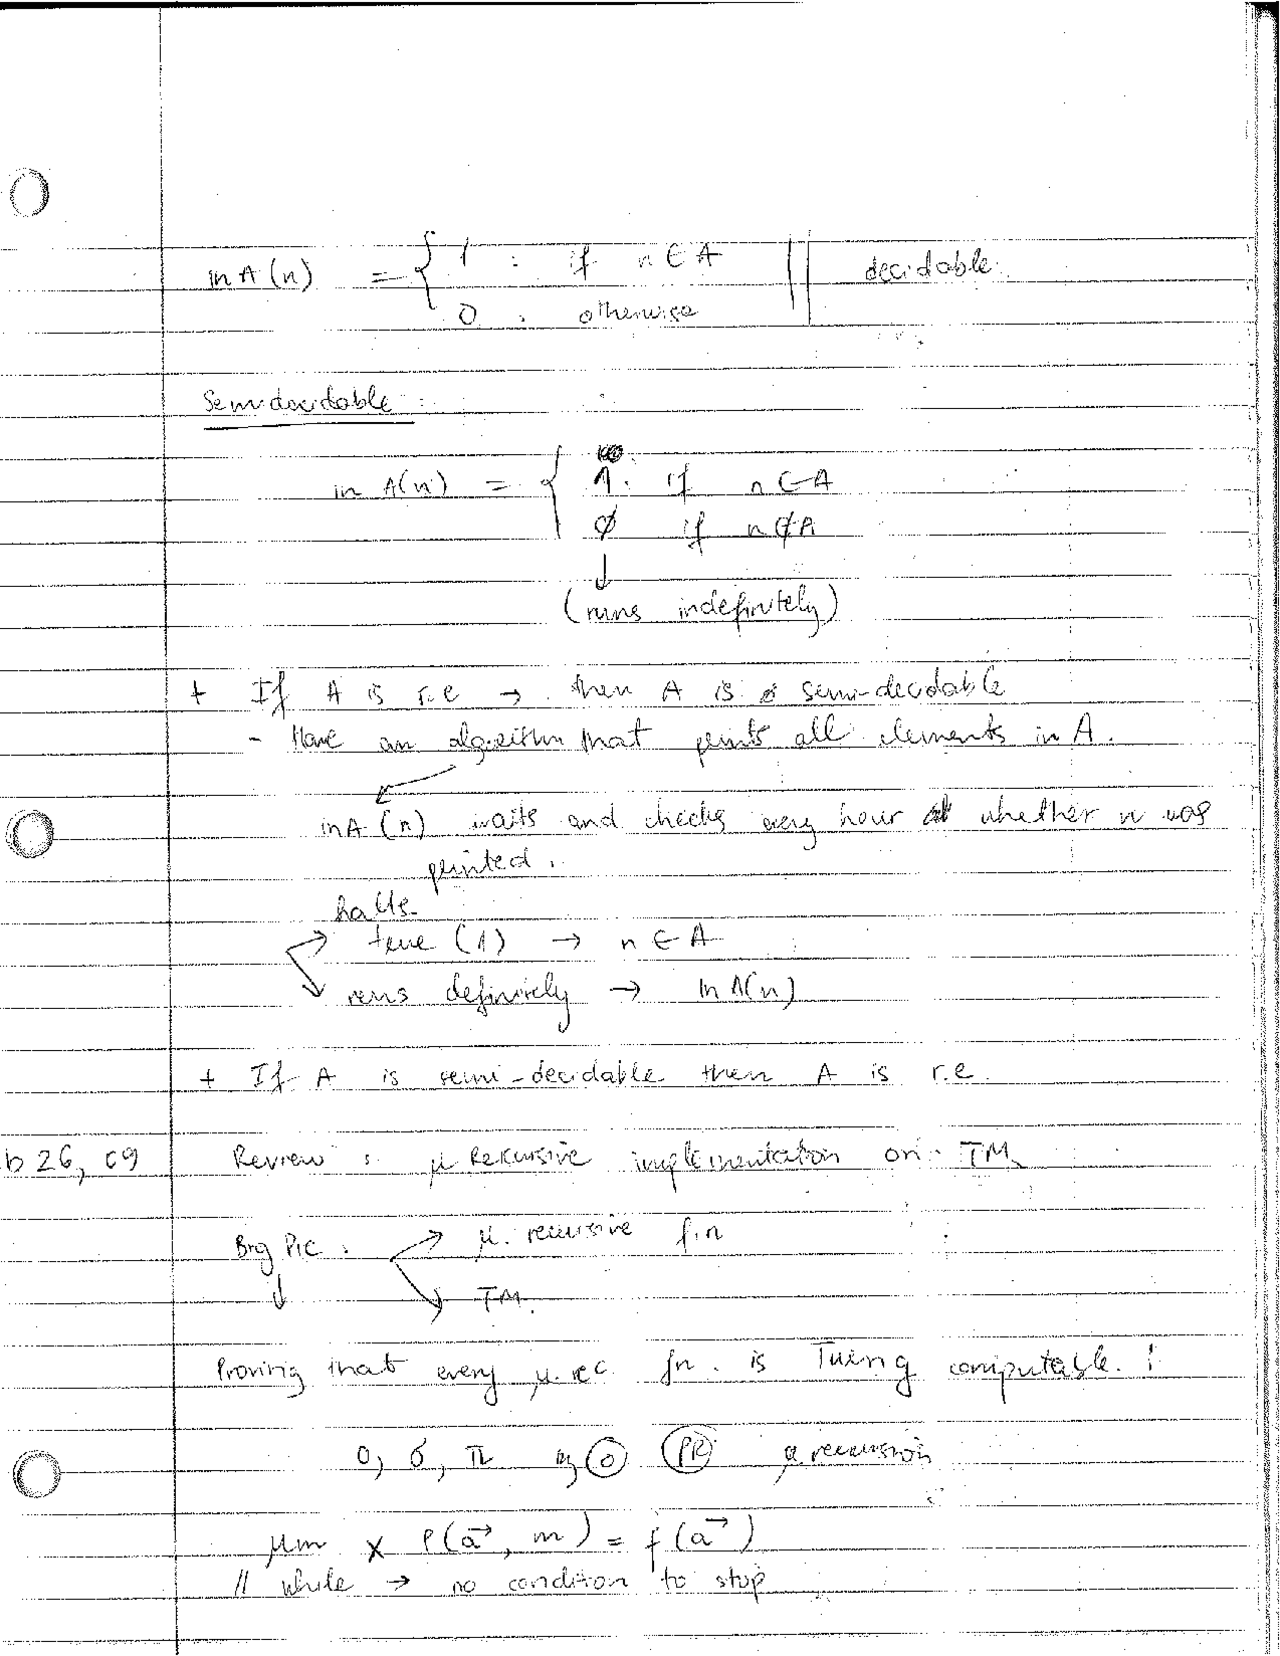 in A(n) = { 1 : if n ∈ A || decidable.
0 : otherwise
Semidecidable :
in A(n) = { 1. if n ∈ A
∅ if n ∉ A
↓
(runs indefinitely)
+ If A is r.e → then A is semi-decidable
- Have an algorithm that prints all elements in A.
in A (n) waits and checks every hour whether n was
printed.
halts
true (1) → n ∈ A
runs definitely → in A(n)
+ If A is semi-decidable then A is r.e.
b 26, 09 Review : μ Recursive implementation on TM.
Big Pic : μ. recursive f.n
↓ TM.
Proving that every μ. rec. fn. is Turing computable. :
0, σ, π ∘ PR μ recursion
μm P(a⃗, m) = f(a⃗)
// while → no condition to stop